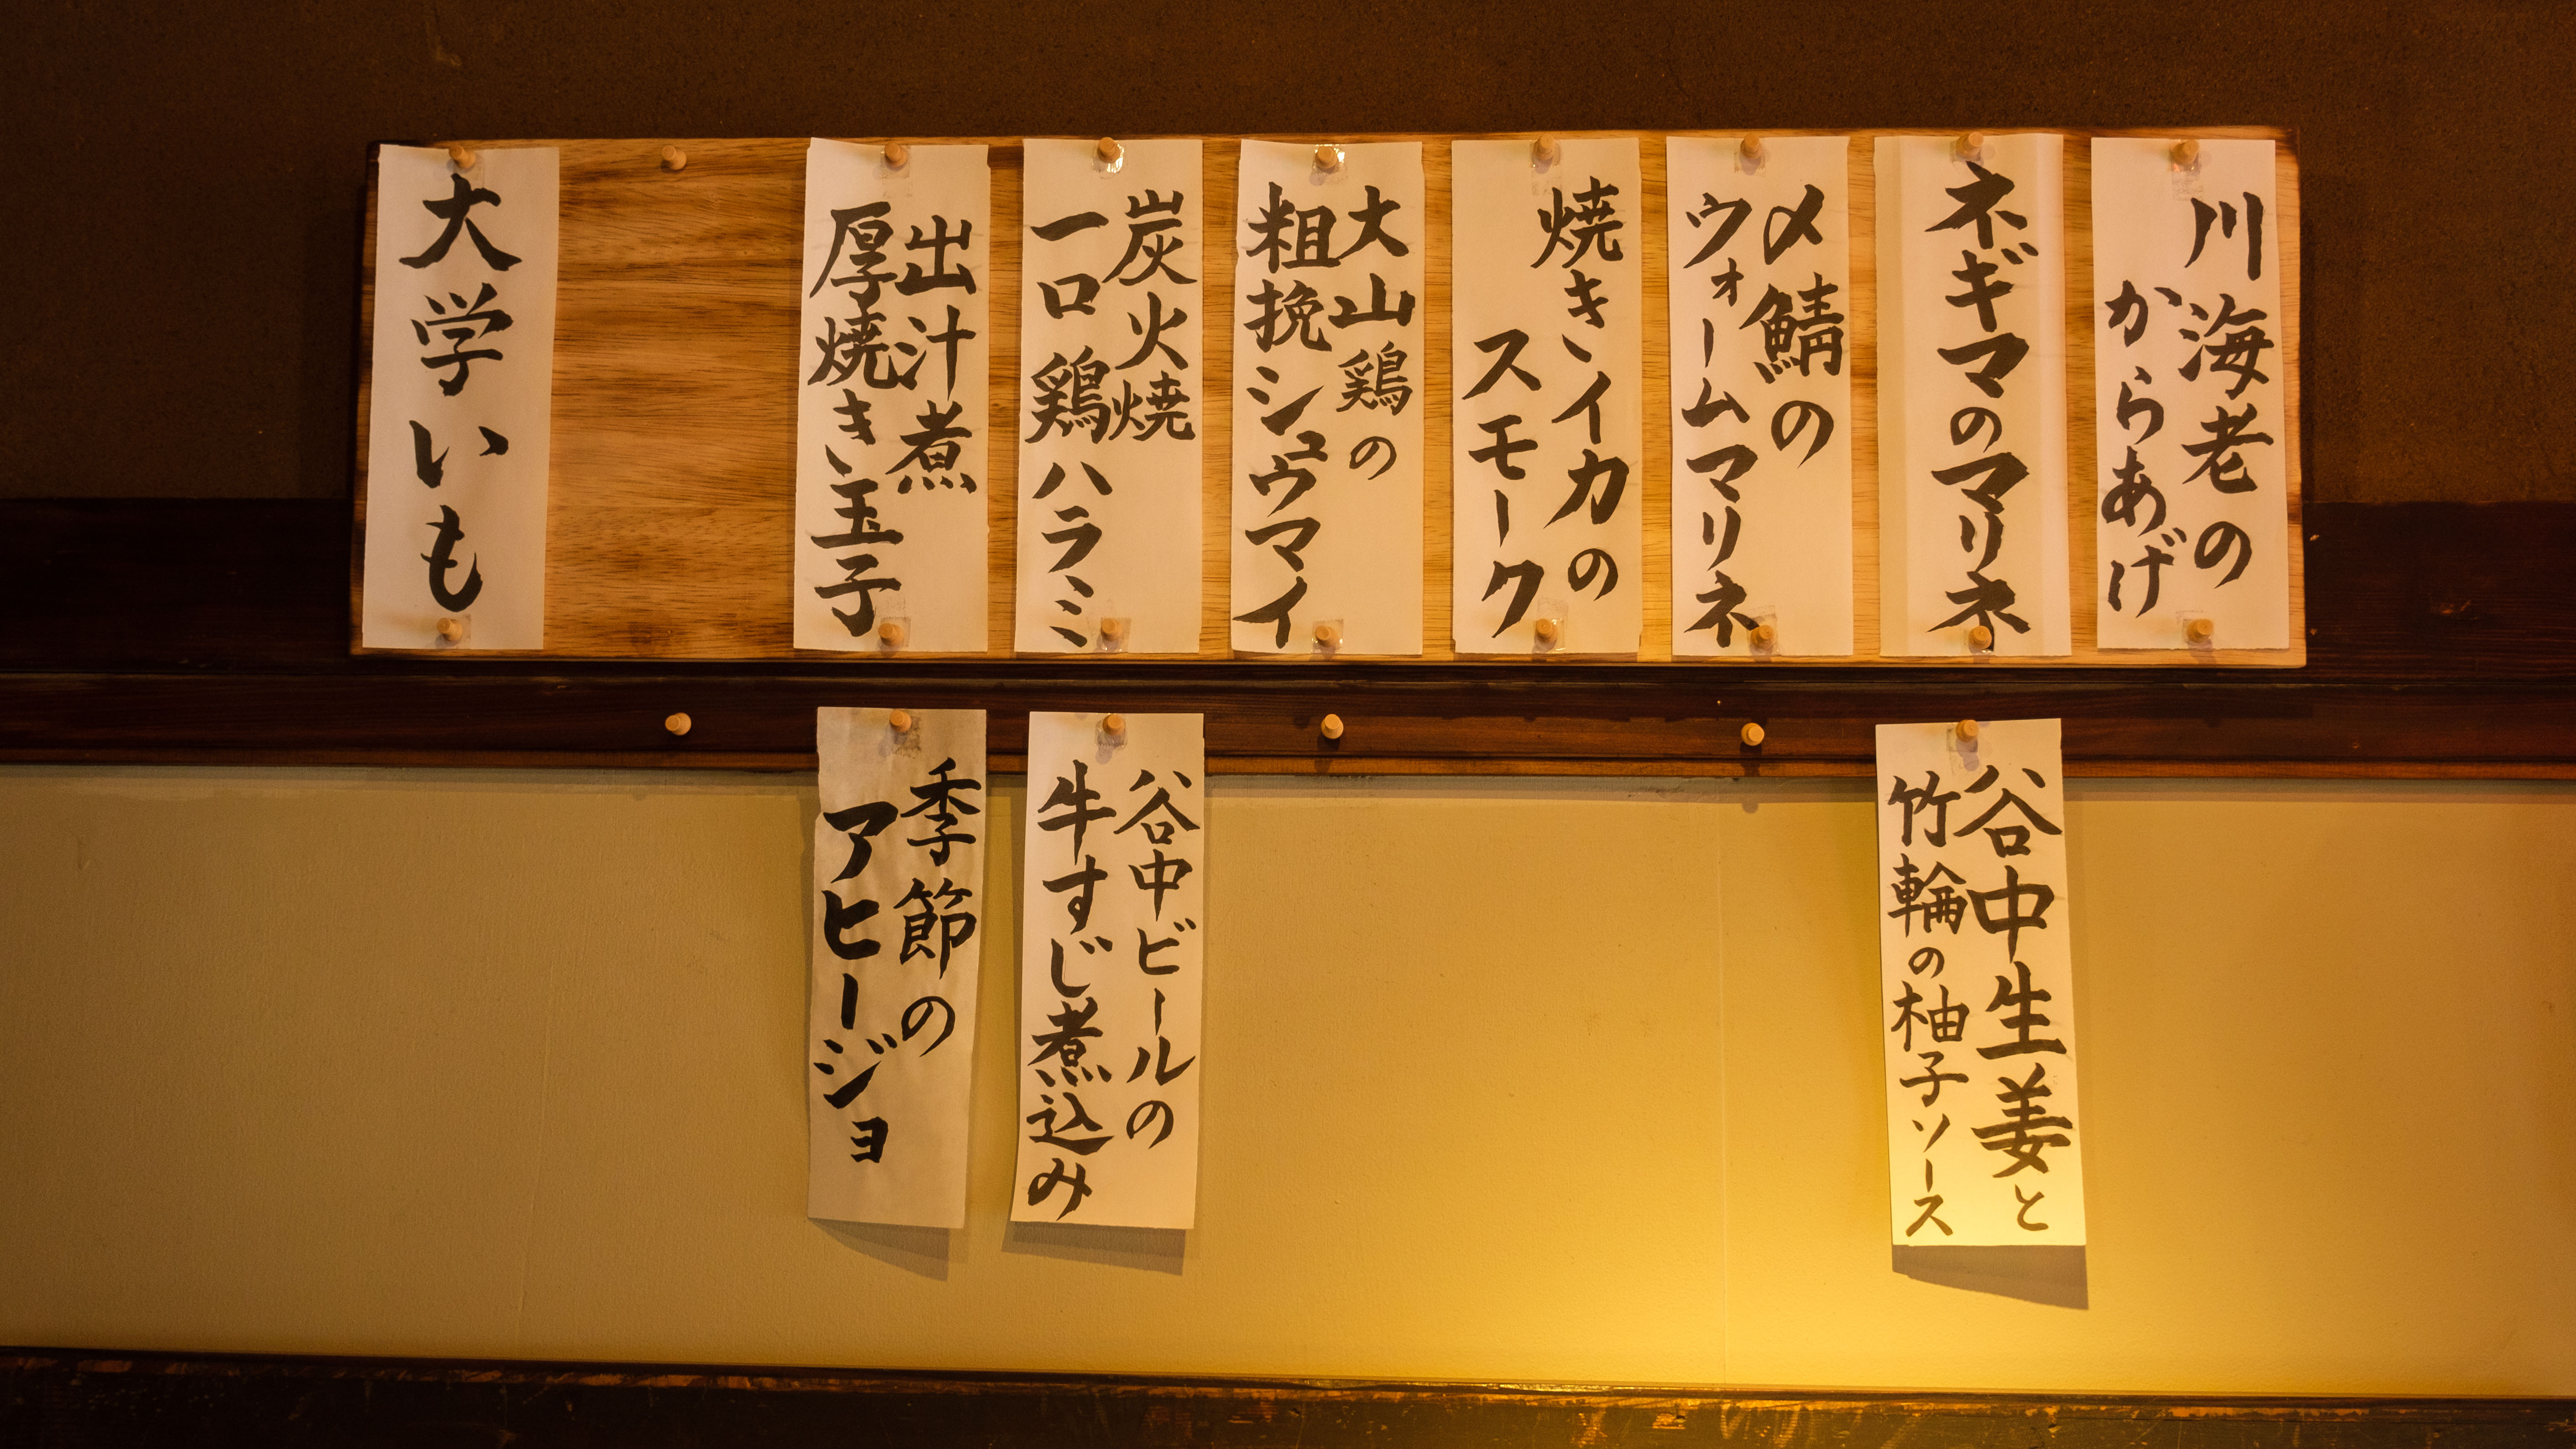 川海老の
からあげ
ネギマのマリネ
〆鯖の
ウォームマリネ
焼きイカの
スモーク
大山鶏の
粗挽シュウマイ
炭火焼
一口鶏ハラミ
出汁煮
厚焼き玉子
大学いも
谷中生姜と
竹輪の柚子ソース
谷中ビールの
牛すじ煮込み
季節の
アヒージョ